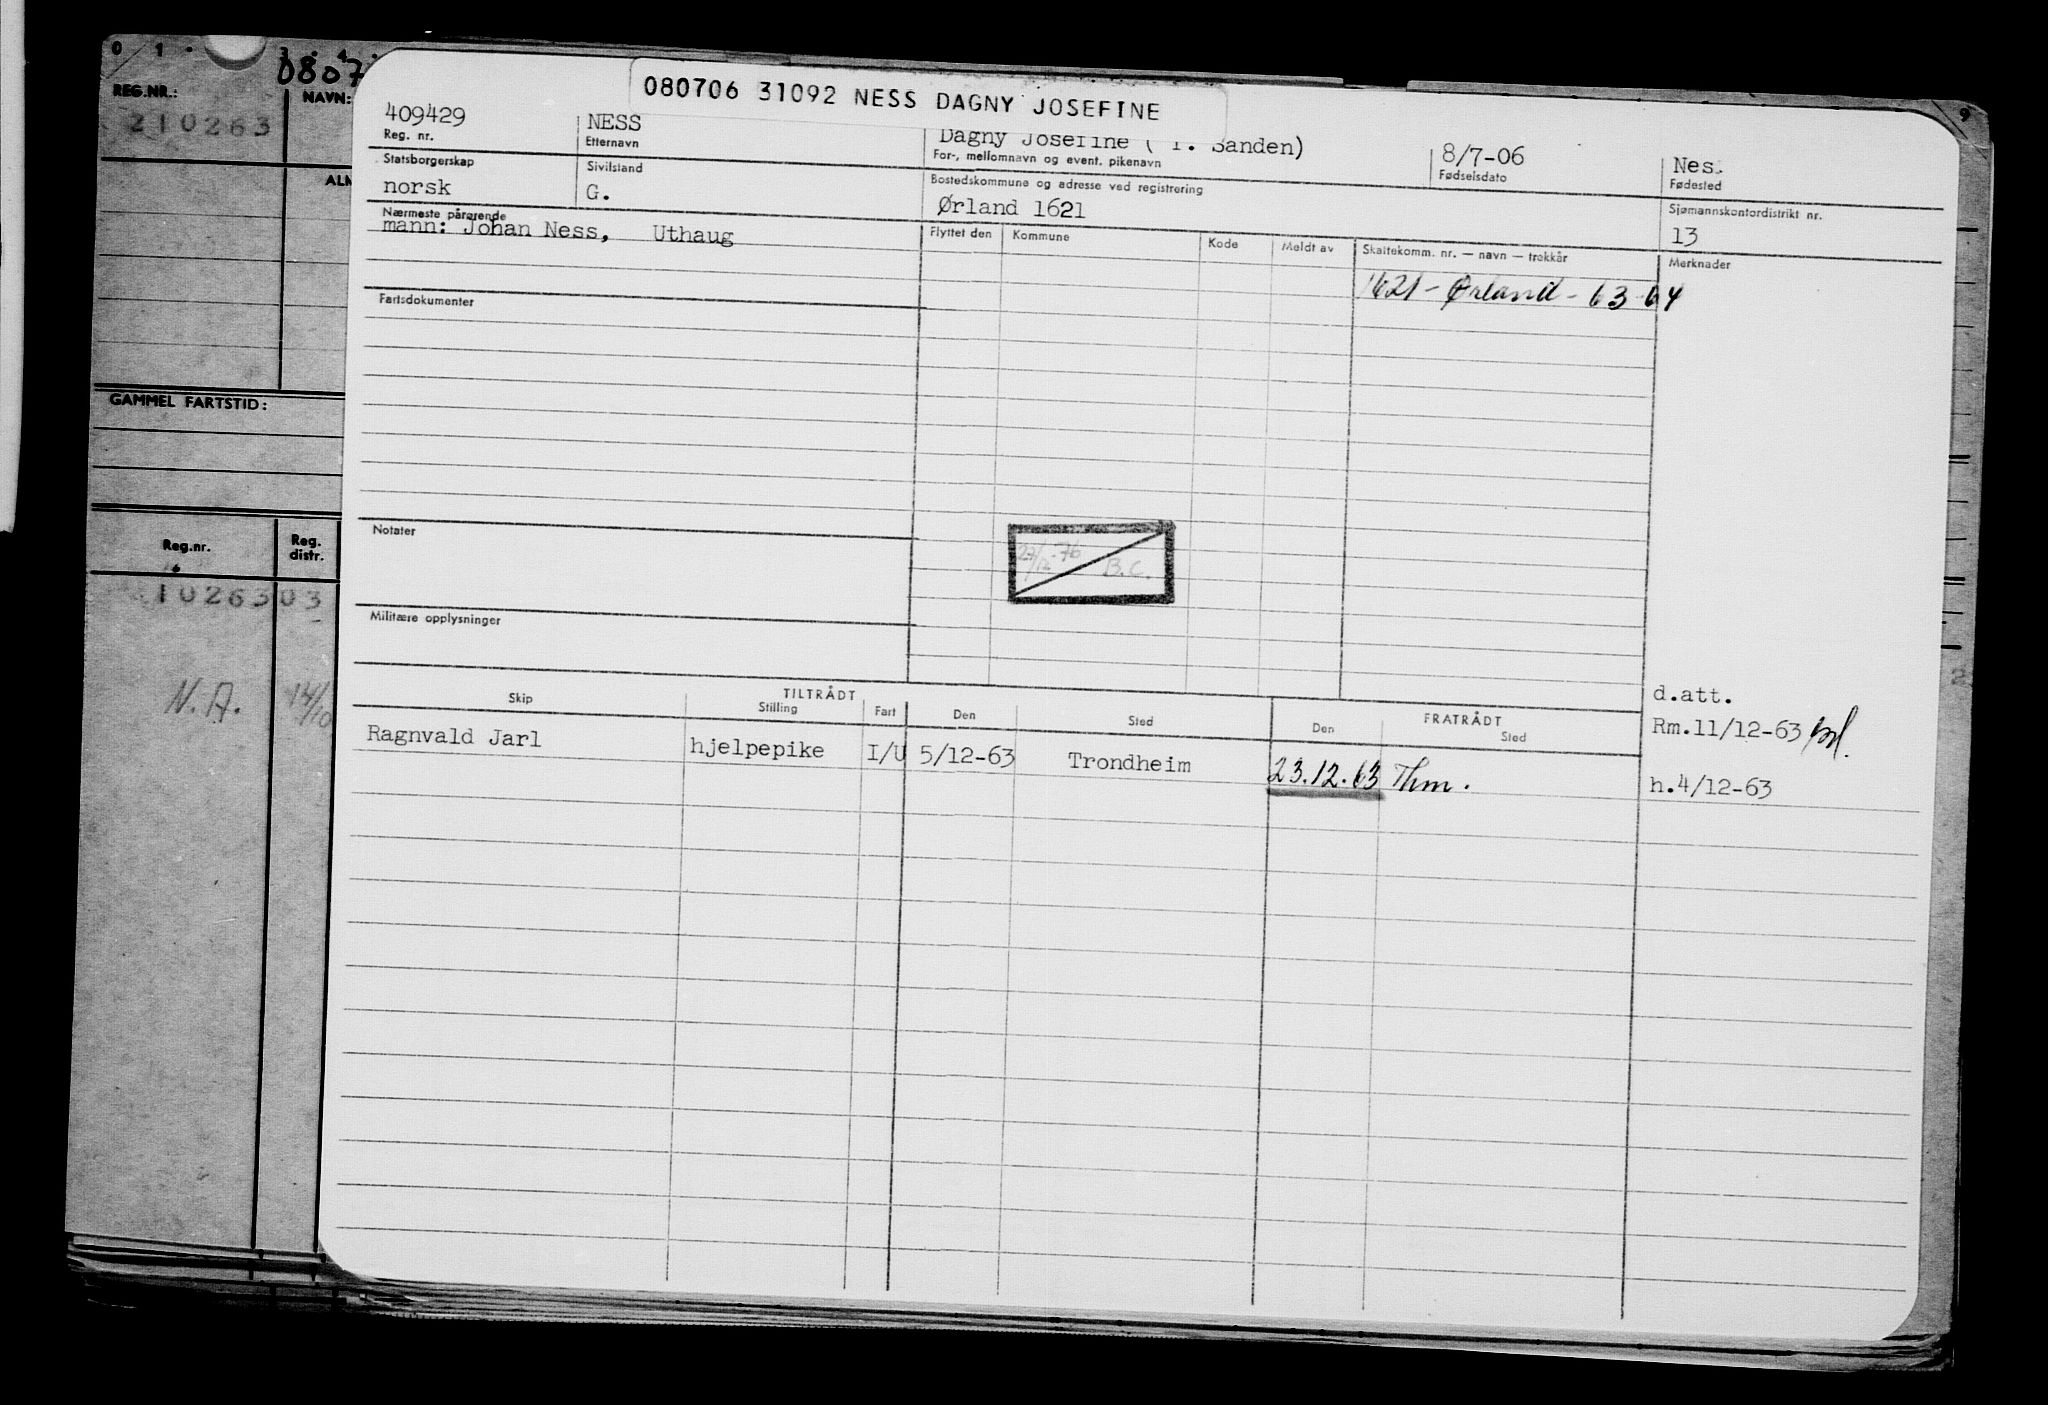 0 1 3 4
0807
REG.NR.: NAVN:
210263
GAMMEL FARTSTID:
Reg.nr. Reg. distr.
1026303
N.A. 14/10
9
080706 31092 NESS DAGNY JOSEFINE
409429 NESS Dagny Josefine ( f. Sanden) 8/7-06 Nes.
Reg. nr. Etternavn For-, mellomnavn og event. pikenavn Fødselsdato Fødested
Statsborgerskap Sivilstand Bostedskommune og adresse ved registrering Sjømannskontordistrikt nr.
norsk G. Ørland 1621 13
Nærmeste pårørende Flyttet den Kommune Kode Meldt av Skattekomm. nr. — navn — trekkår Merknader
mann: Johan Ness, Uthaug
1621 - Ørland - 63-64
Fartsdokumenter
Notater
27/12-76 B.C.
Militære opplysninger
TILTRÅDT FRATRÅDT
Skip Stilling Fart Den Sted Den Sted
d.att.
Rm.11/12-63
Ragnvald Jarl hjelpepike I/U 5/12-63 Trondheim 23.12.63 Thm.
h.4/12-63